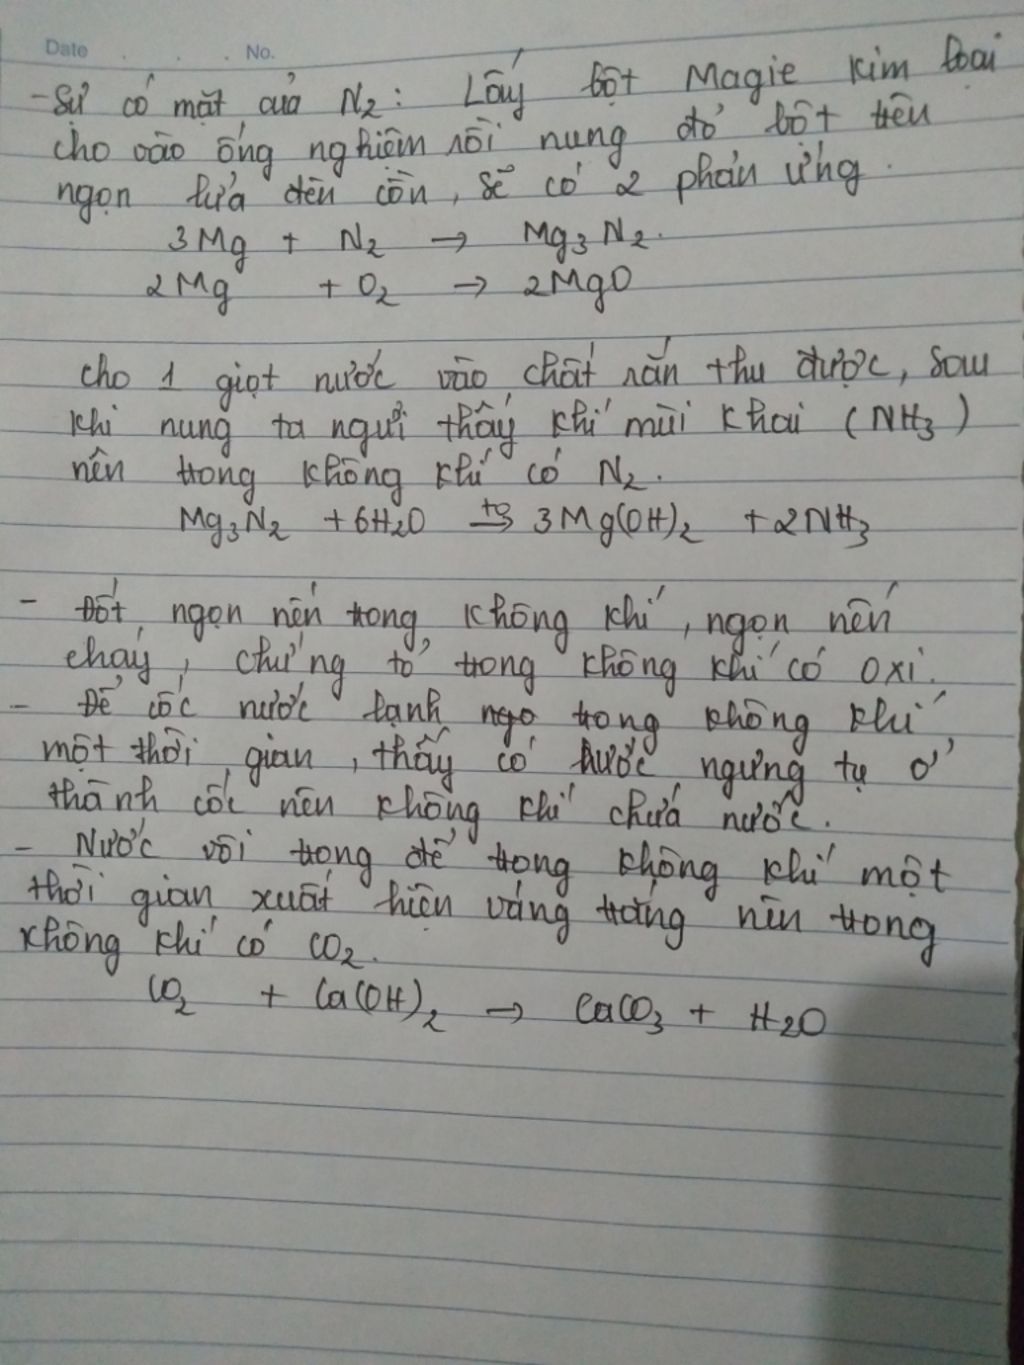 Date . . . No.
- Sự có mặt của N₂: Lấy bột Magie kim loại
cho vào ống nghiệm rồi nung đỏ bột trên
ngọn lửa đèn cồn, sẽ có 2 phản ứng.
3Mg + N₂ → Mg₃N₂.
2Mg + O₂ → 2MgO
cho 1 giọt nước vào chất rắn thu được, sau
khi nung ta ngửi thấy khí mùi khai (NH₃)
nên trong không khí có N₂.
Mg₃N₂ + 6H₂O →(t°) 3Mg(OH)₂ + 2NH₃
- Đốt ngọn nến trong không khí, ngọn nến
cháy, chứng tỏ trong không khí có oxi.
- Để cốc nước lạnh ngo trong không khí
một thời gian, thấy có nước ngưng tụ ở
thành cốc nên không khí chứa nước.
- Nước vôi trong để trong không khí một
thời gian xuất hiện váng trắng nên trong
không khí có CO₂.
CO₂ + Ca(OH)₂ → CaCO₃ + H₂O